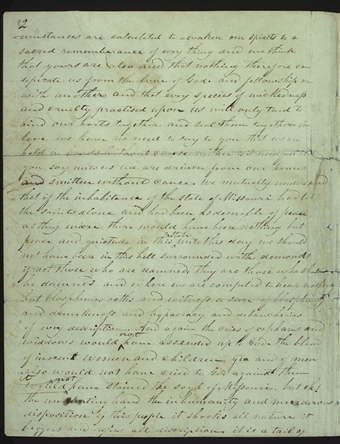 2
circumstances are calculated to awaken our spirits to a
sacred rememberance of every thing and we think
that yours are also and that nothing therefore can
seperate us from the love of God and fellowship one
with another and that every species of wickedness
and cruelty practised upon us will only tend to
bind our harts together and seal them together in
love we have no need to say to you that we are
held in bonds without cause
you say unto us we are driven from our homes
and smitten without cause we mutually understand
that if the inhabitance of the state of Missouri had let
the saints alone and had been as desirable of peace
as they ware there would have been nothing but
peace and quietude in this state unto this day we should
not have been in this hell surrounded with demons
if not those who are damned they are those who shall
be damned and where we are compeled to hear nothing
but blasphemos oaths and witness a seen of blasphemy
and drunkeness and hypocracy and
of every description. And again the cries of orphans and
widdows would not have assended up to God. the blood
of inocent women and children yea and of men
also would not have cried to God against them
it would not have stained the soyl of Missouri. but oh!
the unrelenting hand the inhumanity and murderous
disposition of this people it shocks all nature it
beggers and defies all discription. it is a tail of